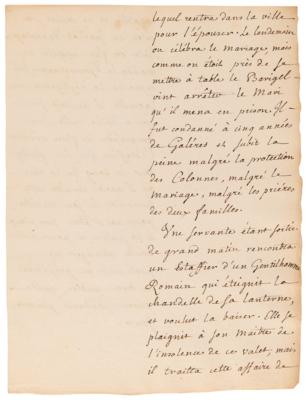 lequel rentra dans la ville
pour l'épouser. Le lendemain
on célébra le mariage, mais
comme on étoit près de se
mettre à table le Barigel
vint arrêter le Mari
qu'il mena en prison. Il
fut condanné à cinq années
de Galéres et subit la
peine malgré la protection
des Colonnes, malgré le
Mariage, malgré les prières
des deux familles.
Une servante étant sortie
de grand matin rencontra
un Estaffier d'un Gentilhomme
Romain qui éteignit la
chandelle de sa lanterne,
et voulut la baiser. Elle se
plaignit à son Maitre de
l'insolence de ce valet, mais
il traitta cette affaire de